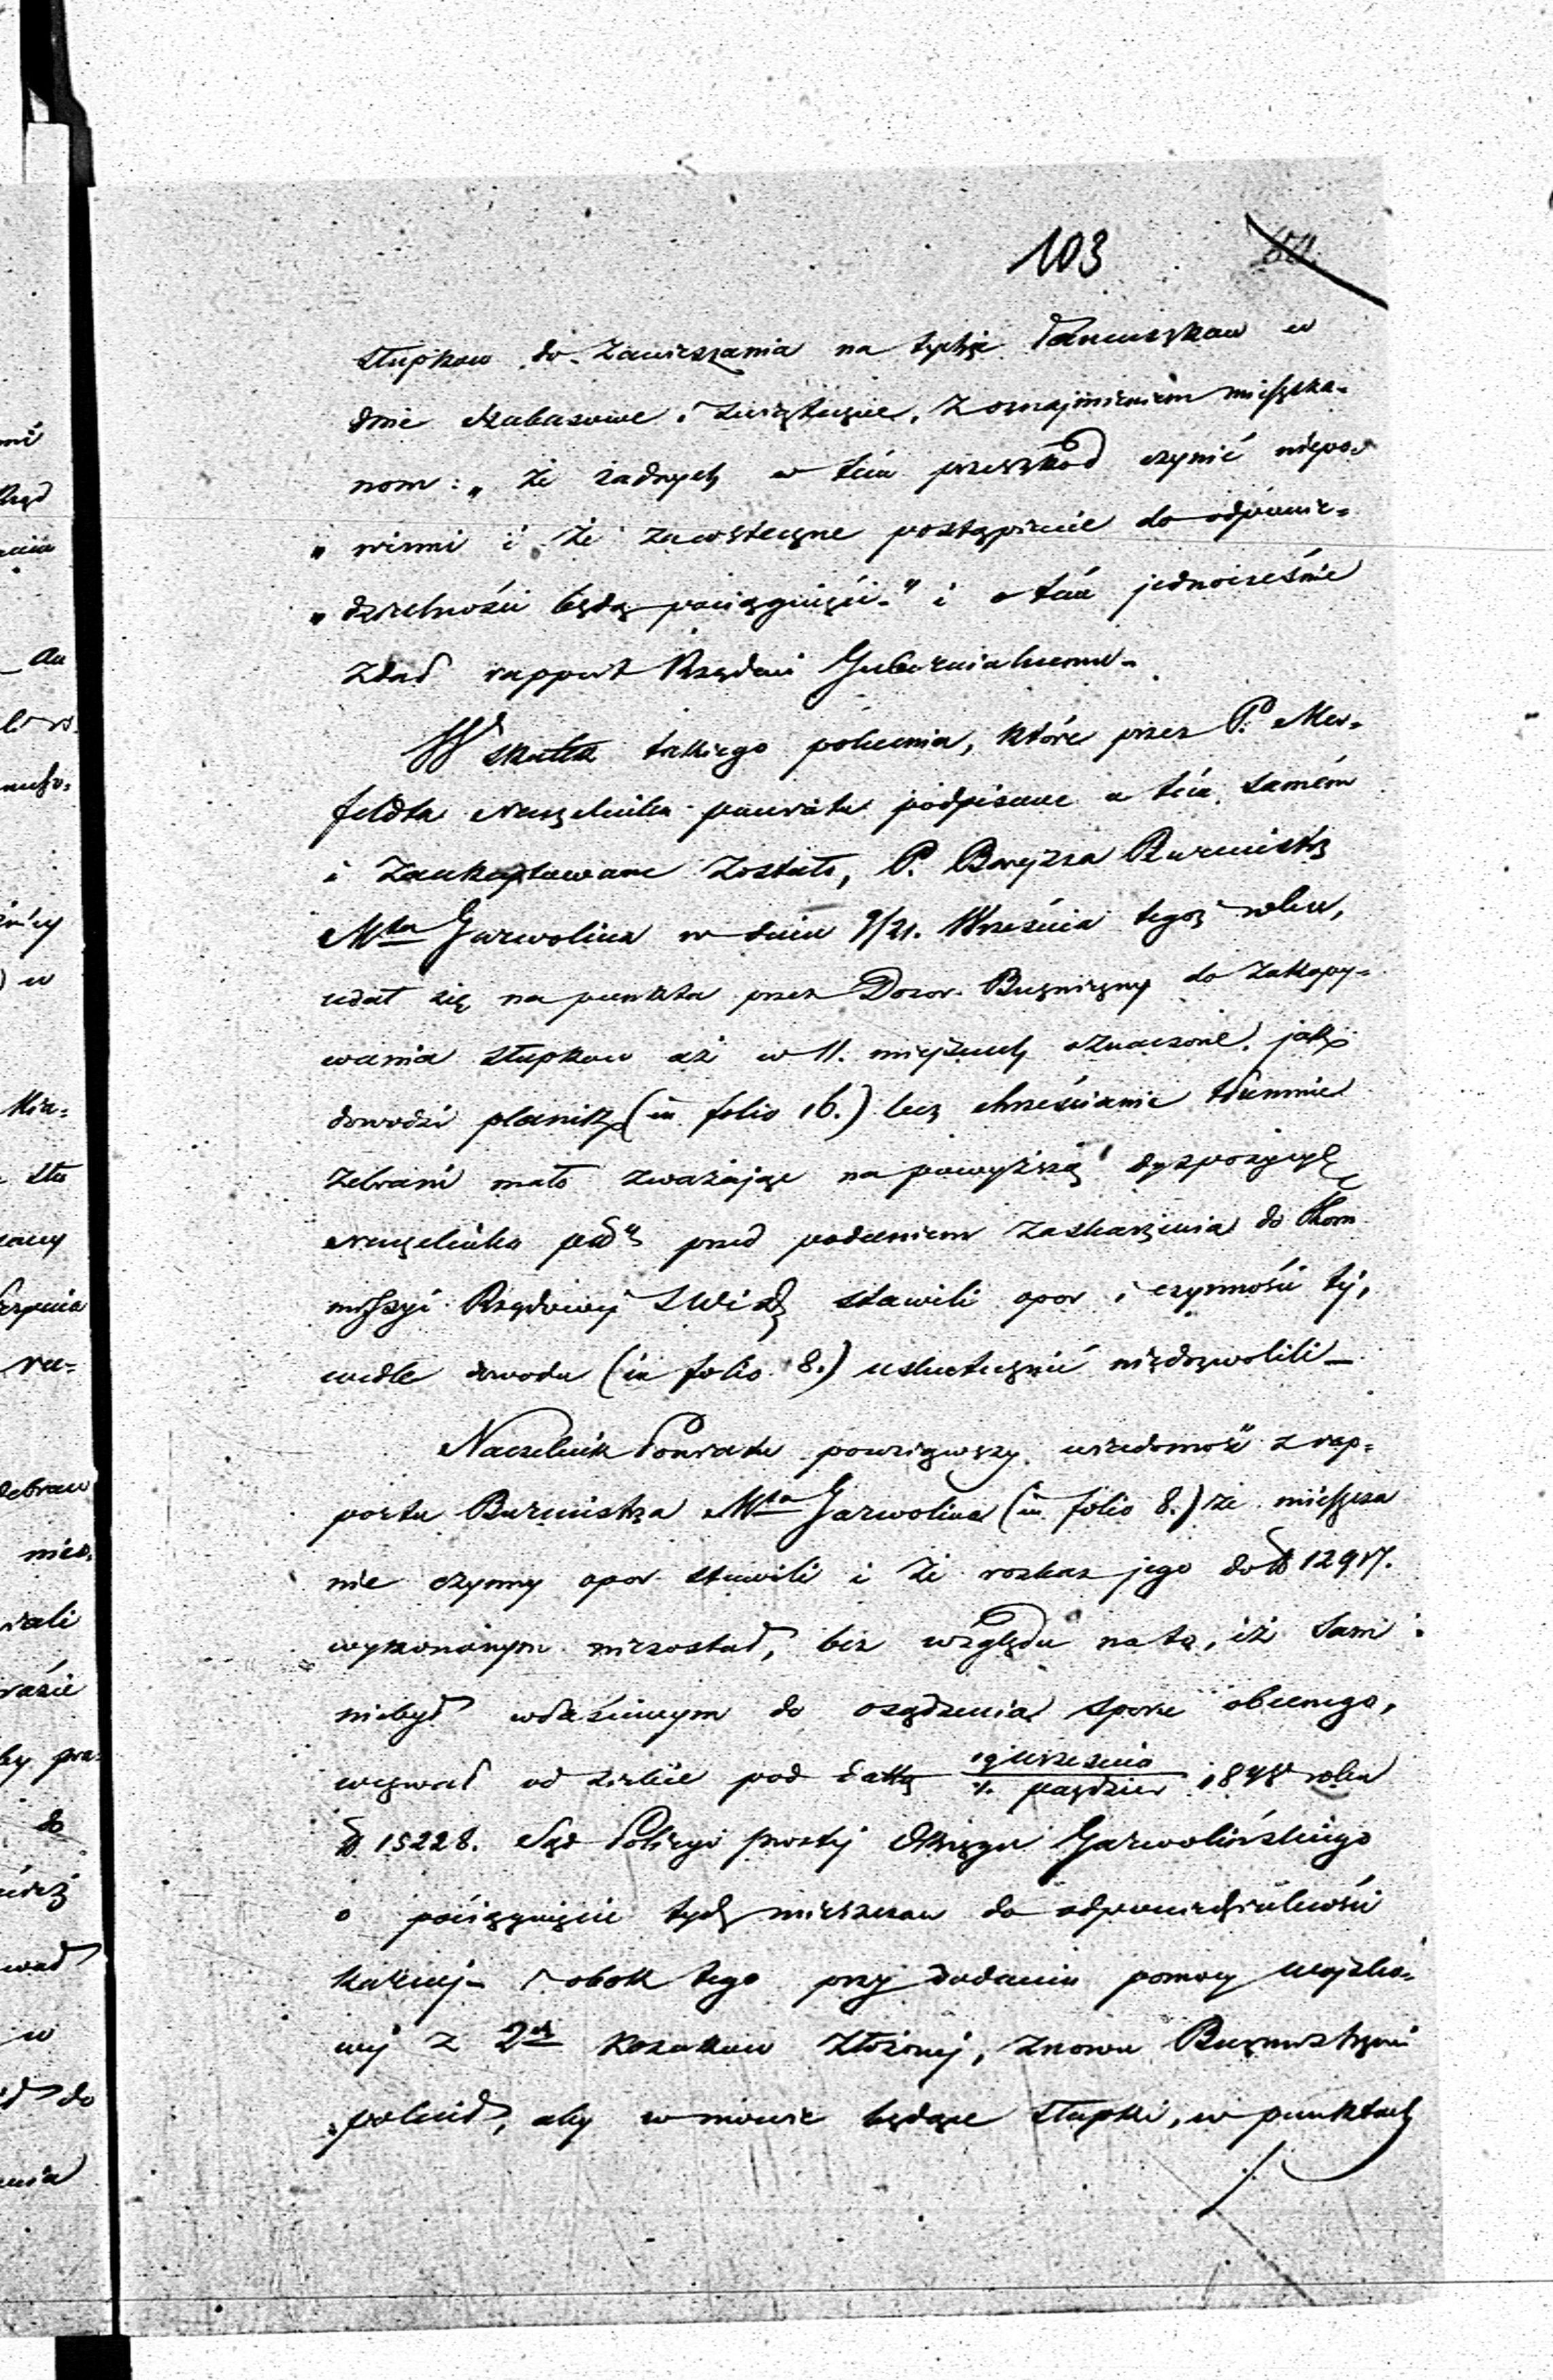 103
słupkow do zawieszania na tychże łancuszkow w
dnie szabasowe i swięteczne, z oznajmieniem mieszka=
nom: „że żadnych w tém przeszkod czynić niepo=
„winni i że zawsteczne postąpienie do odpowie=
„dzielności będą pociągnięci." i o tém jednocześnie
zdał rapport Rządowi Gubernialnemu.
W skutku takiego polecenia, które przez P. Mer=
feldta Naczelnika powiatu podpisane a tém samém
i zaakceptowane zostało, P. Borejsza Burmistrz
Mta Garwolina w dniu 9/21. Września tegoż roku,
udał się na punkta przez Dozor Bużniczny do zakopy=
wania słupkow aż w 11. miejscach oznaczone, jak
dowodzi planik (in folio 16.) lecz chrześcianie tłumnie
zebrani mało zważając na powyższą dyspozycyę
Naczelnika przed podaniem zaskarżenia do Kom
missyi Rządowej S W i D stawili opor i czynności tej,
wedle dowodu (in folio 8.) uskutecznić niedozwolili _
Naczelnik Powiatu powziąwszy wiadomość z rap=
portu Burmistrza Mta Garwolina (in folio 8.) że mieszcza
nie czynny opor stawili i że rozkaz jego do N 12917.
wykonanym niezostał, bez względu na to, iż sam
niebył właściwym do osądzenia sporu obecnego,
wezwał od siebie pod dattą 19 Września / 1. pazdzier 1848 roku
N 15228. Sąd Policyi prostej Okręgu Garwolińskiego
o pociągnięcie tych mieszczan do odpowiedzialności
karnej. I obok tego przy dodaniu pomocy wojsko=
wej z 2ch kozakow złożonej, znowu Burmistrzowi
polecił, aby w mowie będące słupki, w punktach